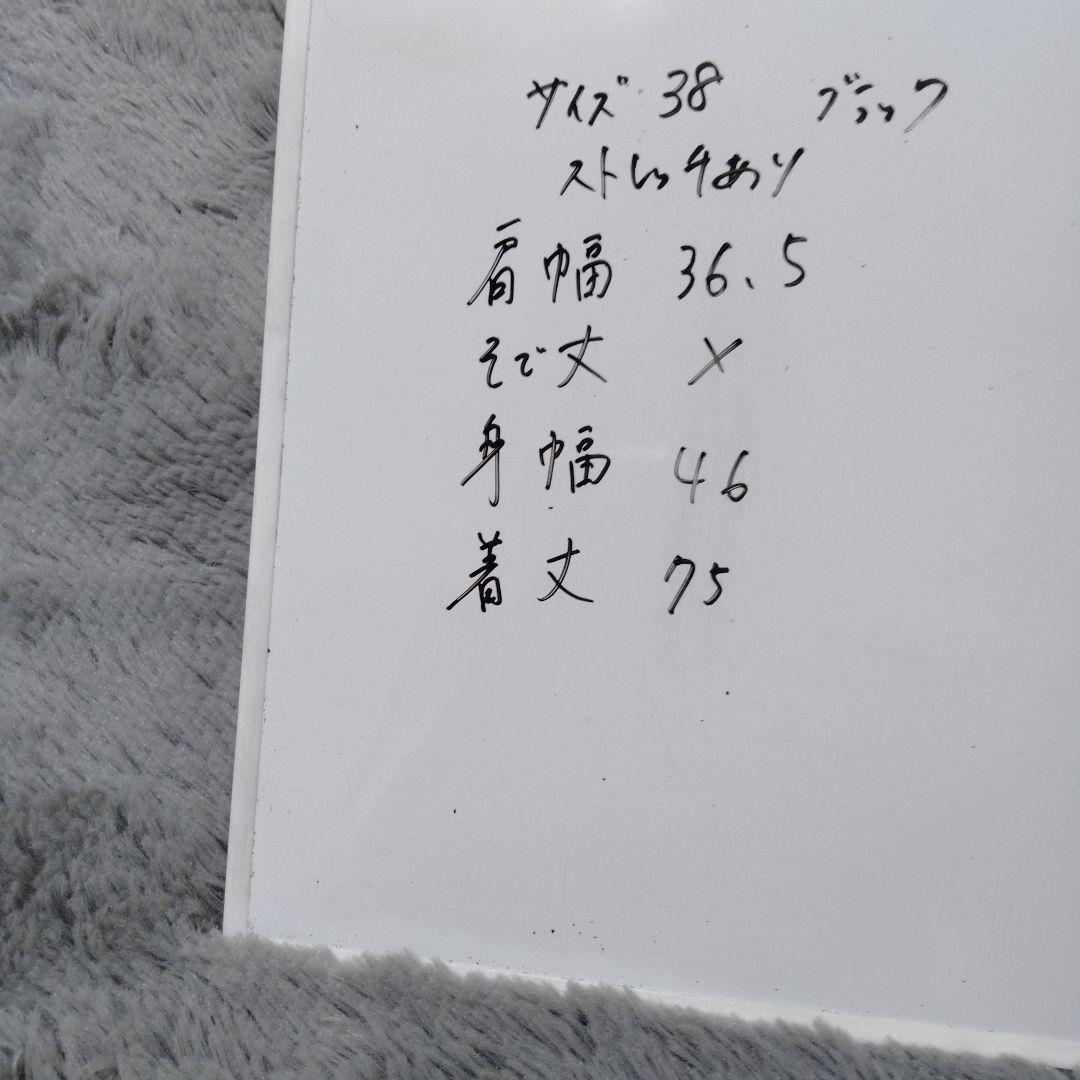 サイズ 38 ブラック
ストレッチあり
肩幅 36.5
そで丈 ×
身幅 46
着丈 75